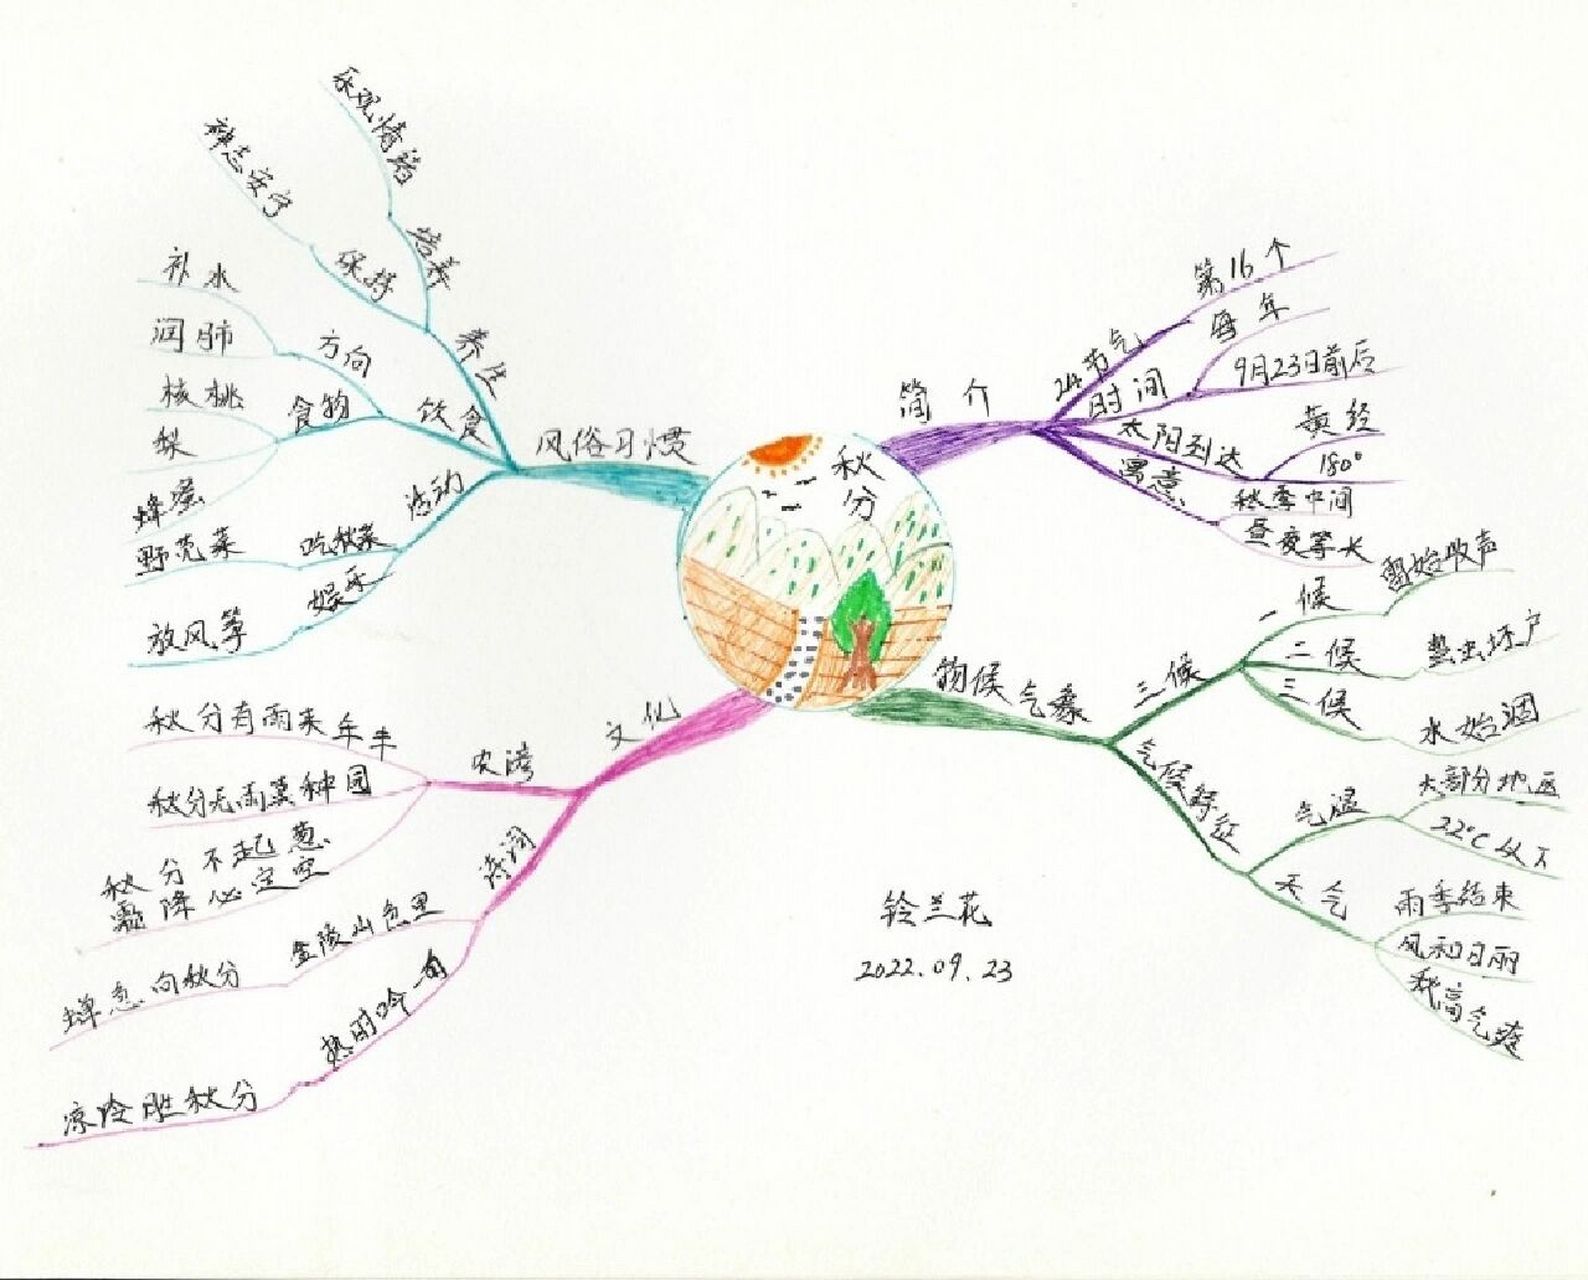 秋分
简介
24节气
第16个
时间
每年
9月23日前后
太阳到达
黄经
180°
寓意
秋季中间
昼夜等长
物候气象
三候
一候
雷始收声
二候
蛰虫坯户
三候
水始涸
气候特征
气温
大部分地区
22°C以下
天气
雨季结束
风和日丽
秋高气爽
文化
农谚
秋分有雨来年丰
秋分无雨莫种园
秋分不起葱
霜降必定空
诗词
金陵山色里
蝉急向秋分
热时吟一句
凉冷胜秋分
风俗习惯
养生
培养
乐观情绪
保持
神志安宁
饮食
方向
补水
润肺
食物
核桃
梨
蜂蜜
活动
吃秋菜
野苋菜
娱乐
放风筝
铃兰花
2022.09.23